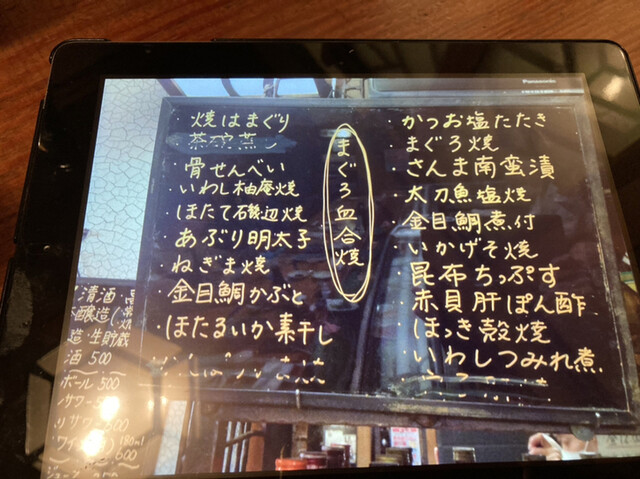 Panasonic
・焼はまぐり
・茶碗蒸し
・骨せんべい
・いわし柚庵焼
・ほたて磯辺焼
・あぶり明太子
・ねぎま焼
・金目鯛かぶと
・ほたるいか素干し
まぐろ血合焼
・かつお塩たたき
・まぐろ焼
・さんま南蛮漬
・太刀魚塩焼
・金目鯛煮付
・いかげそ焼
・昆布ちっぷす
・赤貝肝ぽん酢
・ほっき殻焼
・いわしつみれ煮
清酒
醸造
造・生貯蔵
酒 500
ボール 500
サワー
リサワー 500
ワイン 180ml
600